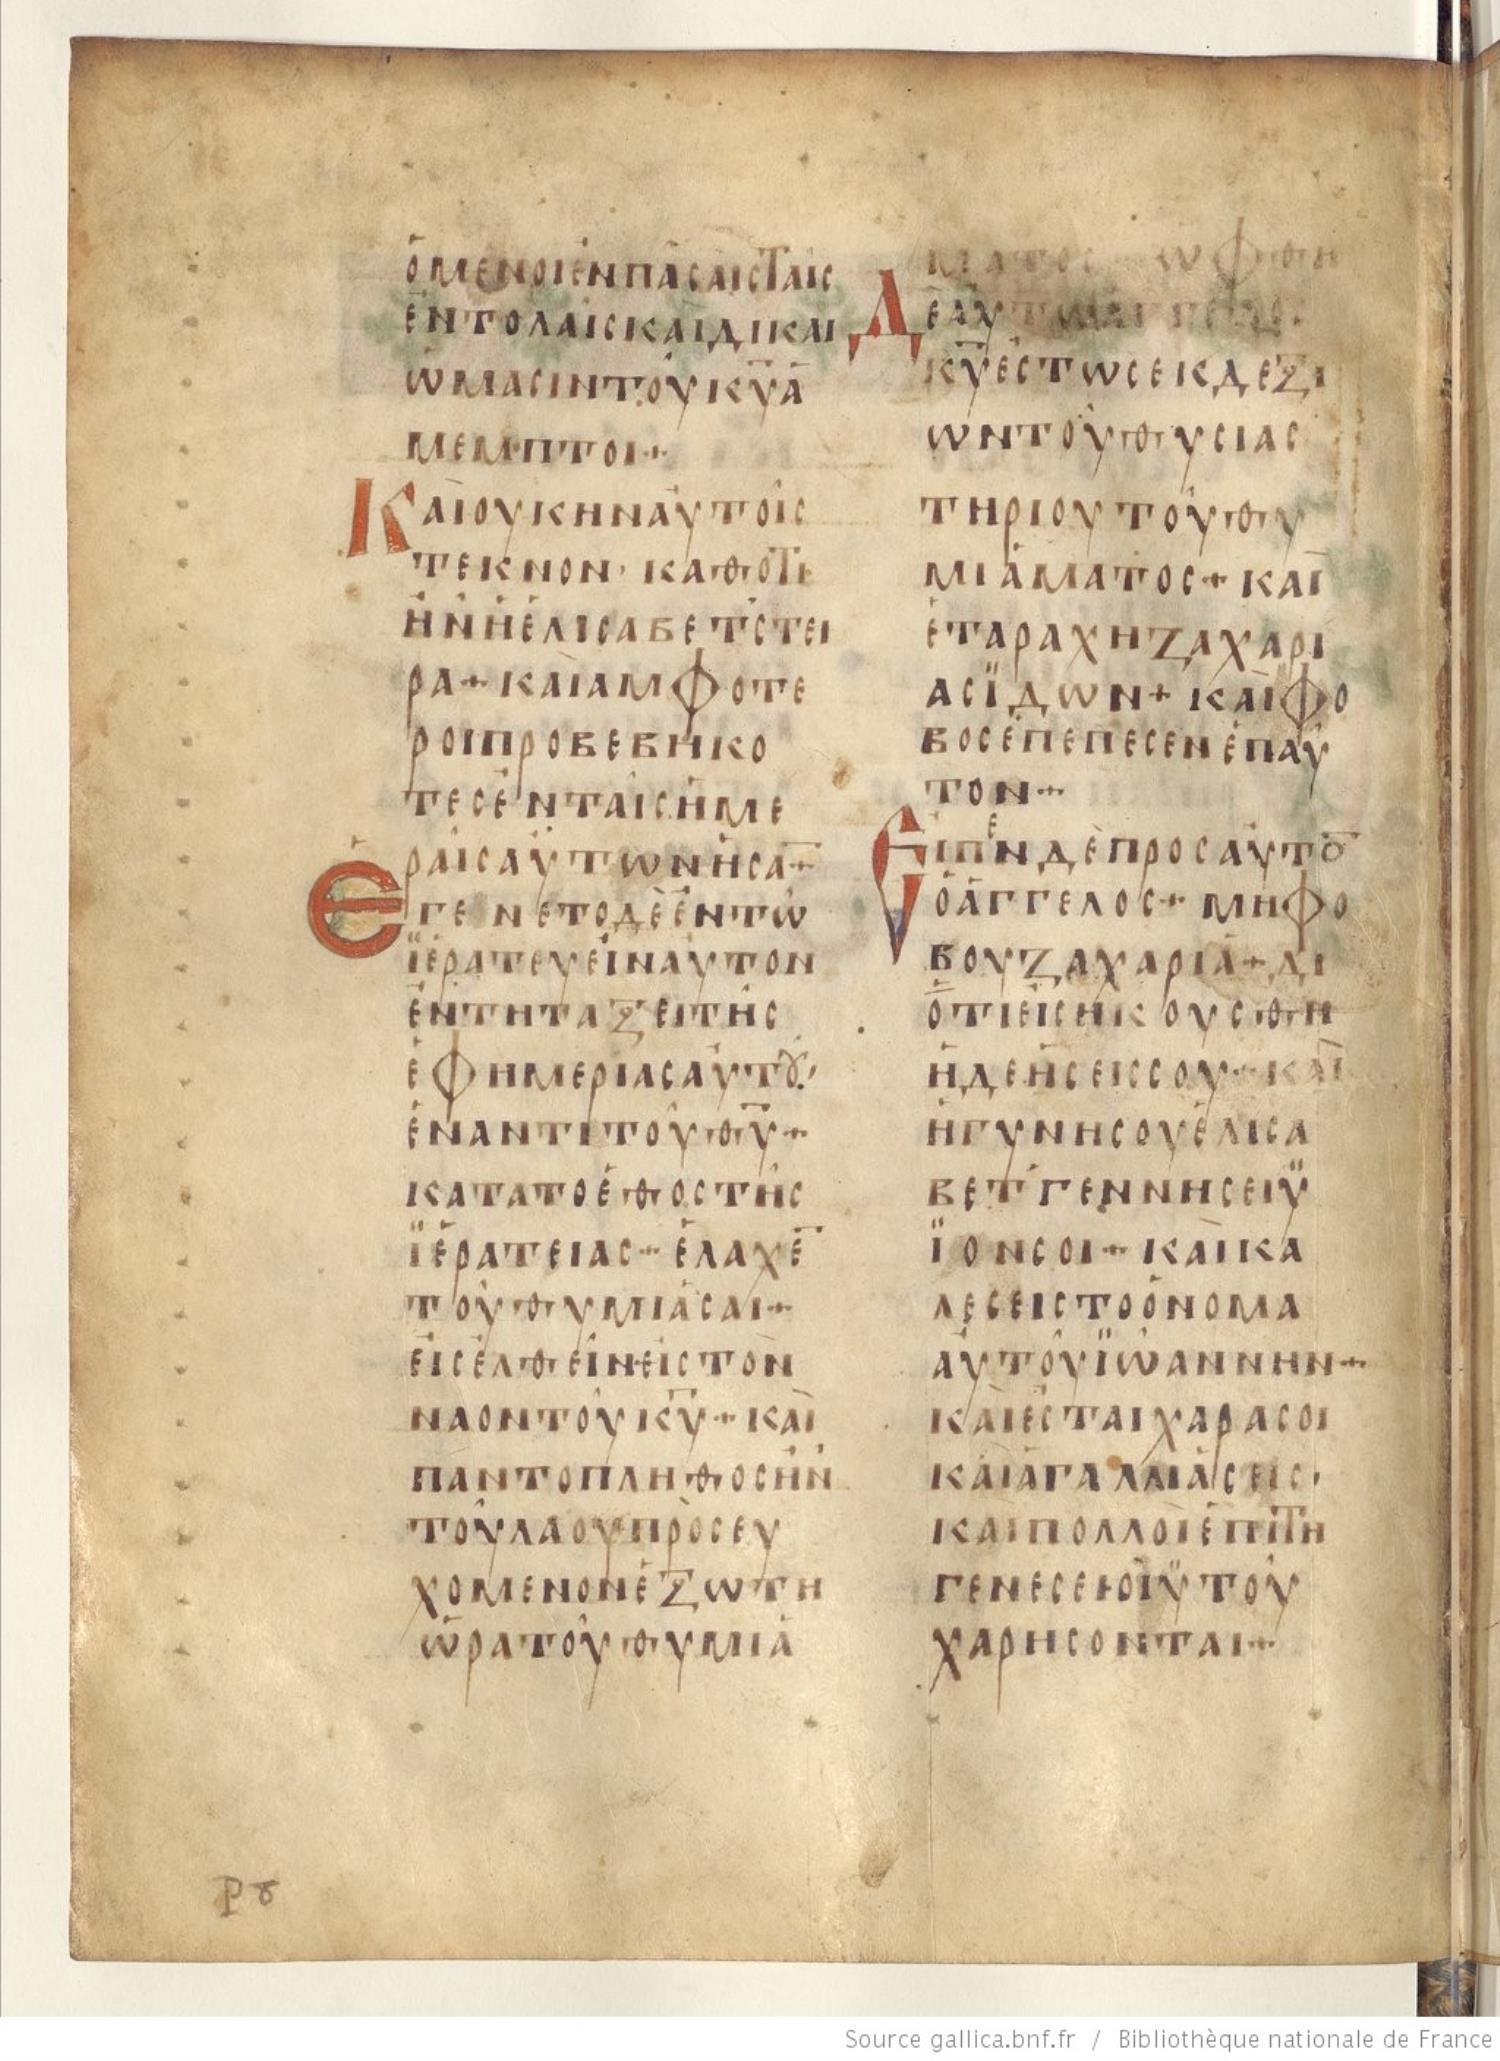 ὁμενοι ἐν πάσαις ταῖς
ἐντολαῖς καὶ δικαι
ώμασιν τοῦ κ̅υ̅ ἄ
μεμπτοι +
Καὶ οὐκ ἦν αὐτοῖς
τέκνον · καθότι
ἦν ἡ ἐλισαβετ στει
ρα + καὶ ἀμφοτε
ροι προβεβηκο
τες ἐν ταῖς ἡμέ
ραις αὐτῶν ἦσα̅ +
Ἐγένετο δὲ ἐν τῷ
ϊερατεύειν αὐτὸν
ἐν τη ταξει τῆς
ἐφημερίας αὐτοῦ ·
ἔναντι τοῦ θ̅υ̅ +
κατα το ἔθος τῆς
ϊερατειας + ἔλαχε̅
τοῦ θυμιάσαι +
εἰσελθεῖν εἰς τὸν
ναον τοῦ κ̅υ̅ + καὶ
παν το πληθος ἦν
τοῦ λαοῦ προσευ
χομενον ἔξω τη
ὥρα τοῦ θυμιά
ματος ὤφθη
Δὲ αὐτῶ ἄγγελος
κ̅υ̅ ἑστως εκ δεξι
ων τοῦ θυσιας
τηριου τοῦ θυ
μιάματος + καὶ
ἐταραχη ζαχαρι
ας ϊδων + καὶ φο
βος ἐπεπεσεν ἐπ αὐ
τον +
Εἶπεν δὲ προς αὐτο̅
ὁ ἄγγελος + μη φο
βου ζαχαριά + δι
ότι εἰσηκουσθη
ἡ δέησεις σου + καὶ
ἡ γυνη σου ἐλισα
βετ γεννησει ϋ
ϊον σοι + καὶ κα
λεσεις το ὄνομα
αὐτοῦ ϊωαννην +
καὶ ἐσται χαρα σοι
καὶ ἀγαλλιάσεις ·
καὶ πολλοὶ ἐπι τη
γενεσει ϋτοῦ
χαρησονται +
Source gallica.bnf.fr / Bibliothèque nationale de France